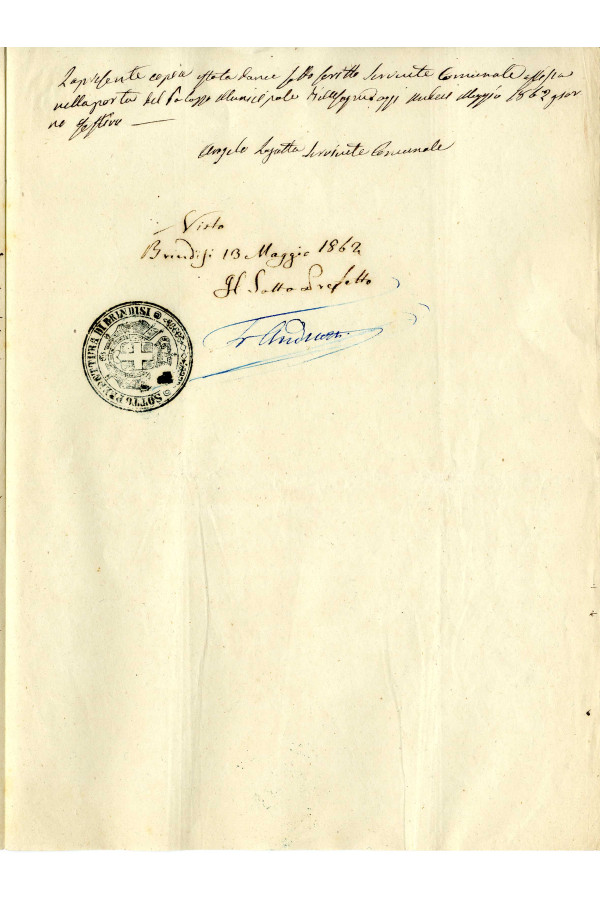 La presente copia è stata da me sotto scritto Serviente Comunale affissa
nella porta del Palazzo Municipale Maggio 1862 gior
no festivo —
Angelo Serviente Comunale
Visto
Brindisi 13 Maggio 1862
Il Sotto Prefetto
SOTTO PREFETTURA DI BRINDISI